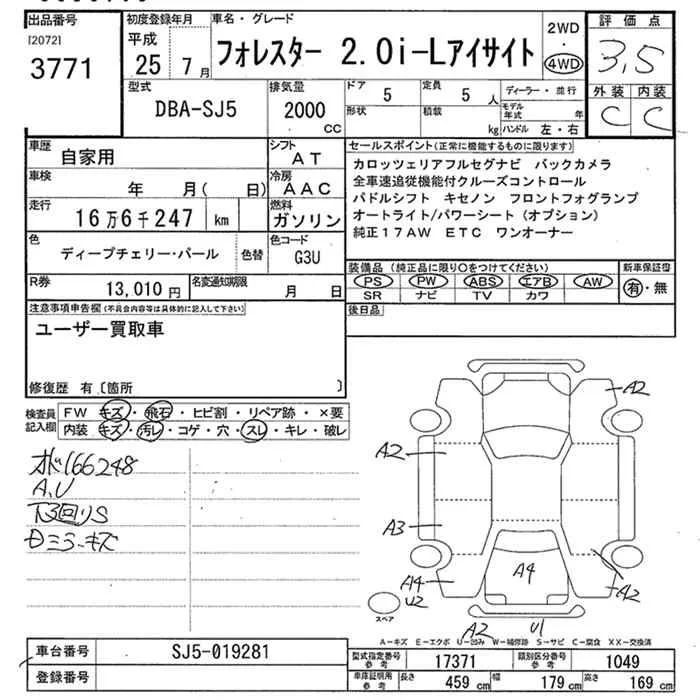 出品番号
[2072]
3771
初度登録年月
平成
25年7月
車名・グレード
フォレスター 2.0i-Lアイサイト
2WD
・
4WD
評価点
3,5
外装 内装
C C
型式
DBA-SJ5
排気量
2000
CC
ドア
5
定員
5人
形状
積載
kg
ディーラー・並行
モデル年式 年
ハンドル 左・右
車歴
自家用
シフト
AT
車検
年 月( 日)
冷房
AAC
走行
16万6千247 km
燃料
ガソリン
色
ディープチェリー・パール
色替
色コード
G3U
R券
13,010円
名変通知期限
月 日
セールスポイント(正常に機能するものに限ります)
カロッツェリアフルセグナビ バックカメラ
全車速追従機能付クルーズコントロール
パドルシフト キセノン フロントフォグランプ
オートライト/パワーシート(オプション)
純正17AW ETC ワンオーナー
装備品(純正品に限り○をつけてください)
PS PW ABS エアB AW
SR ナビ TV カワ
新車保証書
有・無
注意事項申告欄(不具合内容等は具体的に記入して下さい)
ユーザー買取車
後日品
修復歴 有〔箇所 〕
検査員
記入欄
FW キズ・飛石・ヒビ割・リペア跡・×要
内装 キズ・汚レ・コゲ・穴・スレ・キレ・破レ
166248
A,U
下回りS
ミラーキズ
A2
A2
A3
A4
U2
A4
A2
A2
U1
スペア
A-キズ E-エクボ U-凹み W-補修跡 S-サビ C-腐食 XX-交換済
車台番号
SJ5-019281
登録番号
型式指定番号
参考
17371
類別区分番号
参考
1049
車庫証明用
参考
長さ 459 cm
幅 179 cm
高さ 169 cm